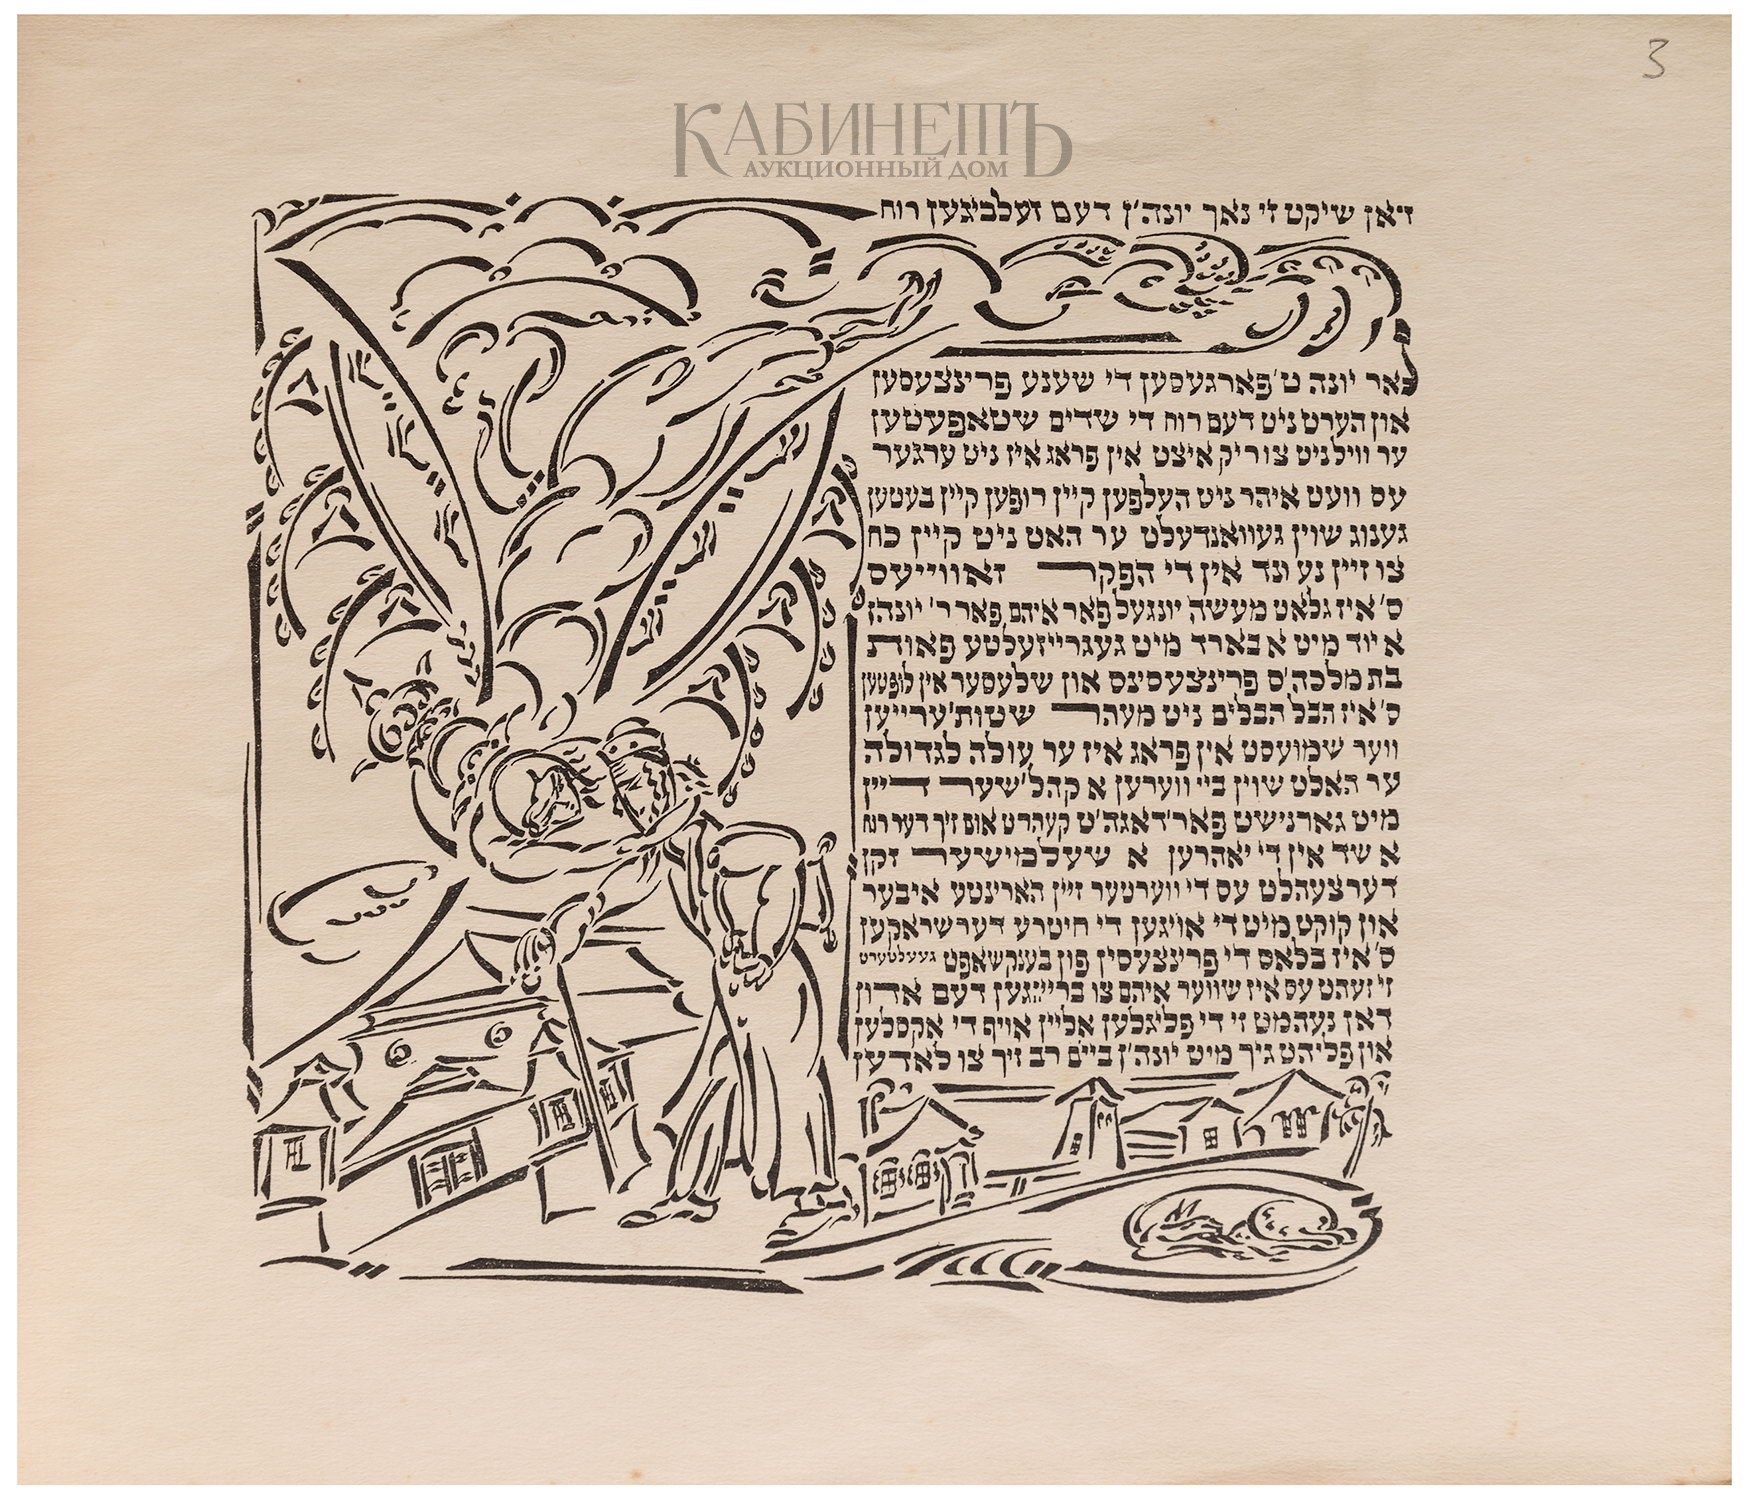 3
КАБИНЕТЪ
АУКЦИОННЫЙ ДОМ
דאן שיקט זי נאך יונה'ן דעם זעלביגען רוח
נאר יונה ט'פארגעסען די שענע פרינצעסען
און הערט ניט דעם רוח די שדים שטאפעטען
ער וויל ניט צוריק איצט אין פראג איז ניט ערגער
עס וועט איהר ניט העלפען קיין רופען קיין בעטען
גענוג שוין געוואנדעלט ער האט ניט קיין כח
צו זיין נע ונד אין די הפקר זאווייעס
ס'איז גלאט מעשה יונגעל פאר איהם פאר ר' יונהן
א יוד מיט א בארד מיט געגרייזעלטע פאות
בת מלכה'ס פרינצעסינס און שלעסער אין לופטען
ס'איז הבל הבלים ניט מעהר שטות'ערייען
ווער שמועסט אין פראג איז ער עולה לגדולה
ער האלט שוין ביי ווערען א קהל'שער דיין
מיט גארנישט פאר'דאגה'ט קעהרט אום זיך דער רוח
א שד אין די יאהרען א שעלמישער זקן
דערצעהלט עס די ווערטער זיין הארינטע איבער
און קוקט מיט די אויגען די חיטרע דערשראקען
ס'איז בלאס די פרינצעסין פון בענקשאפט געעלטערט
זי זעהט עס איז שווער איהם צו ברייגען דעם אדון
דאן נעהמט זי די פליגלען אליין אויף די אקסלען
און פליהט גיך מיט יונה'ן ביים רב זיך צו לאדען